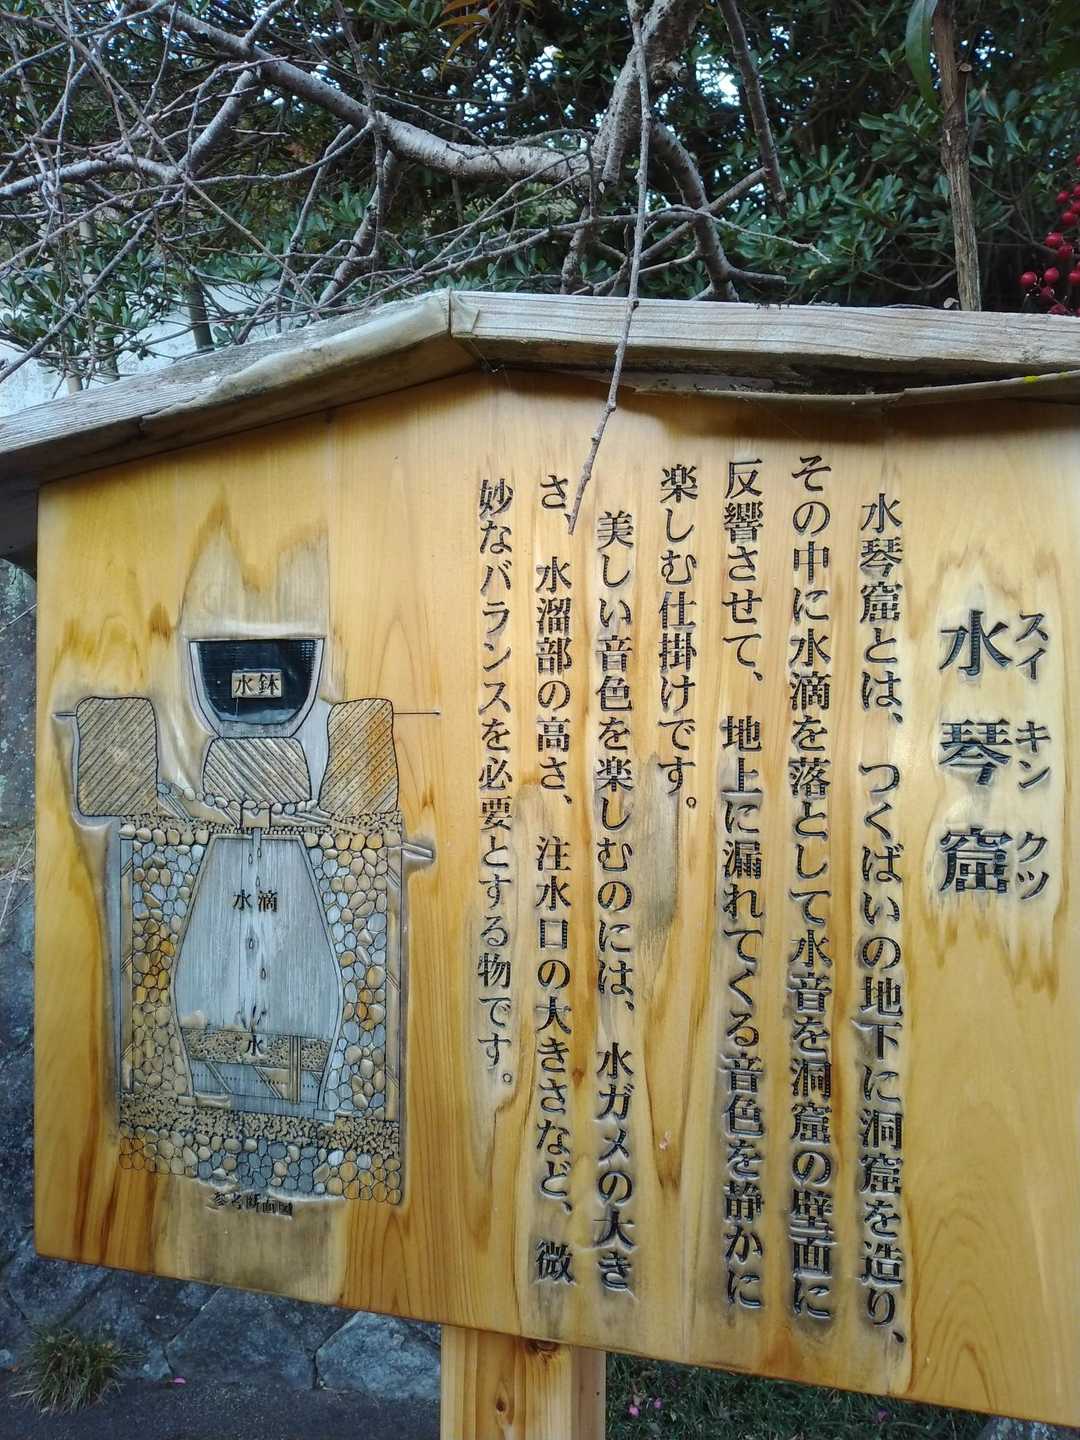 水琴窟
スイキンクツ
水琴窟とは、つくばいの地下に洞窟を造り、
その中に水滴を落として水音を洞窟の壁面に
反響させて、地上に漏れてくる音色を静かに
楽しむ仕掛けです。
美しい音色を楽しむのには、水ガメの大き
さ、水溜部の高さ、注水口の大きさなど、微
妙なバランスを必要とする物です。
水鉢
水滴
水
参考断面図